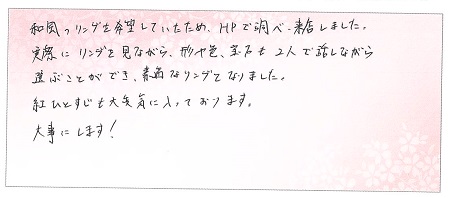 和風のリングを希望していたため、HPで調べ来店しました。
実際にリングを見ながら、形や色、宝石も2人で話しながら
選ぶことができ、素敵なリングとなりました。
紅ひとすじも大変気に入っております。
大事にします!